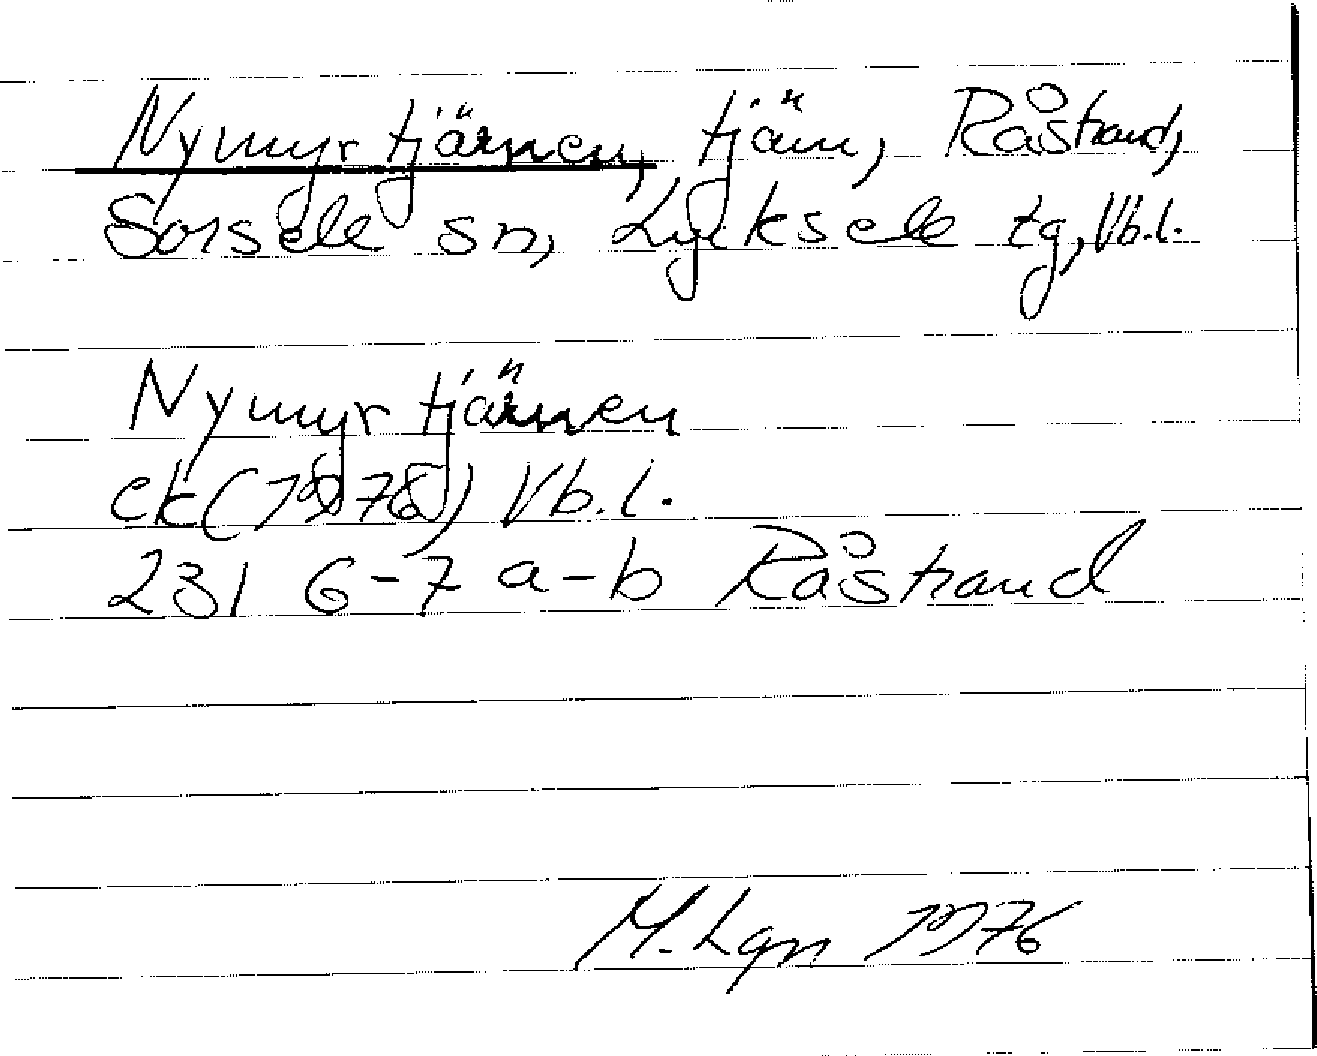 Nymyrtjärnen, tjärn, Råstrand,
Sorsele sn, Lycksele tg, Vb.l.
Nymyrtjärnen
ek (1976) Vb.l.
231 6-7 a-b Råstrand
M. Lgn 1976